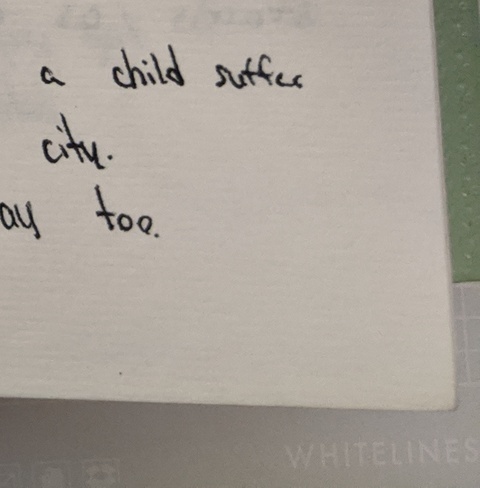 a child suffer
city.
ay too.
WHITELINES